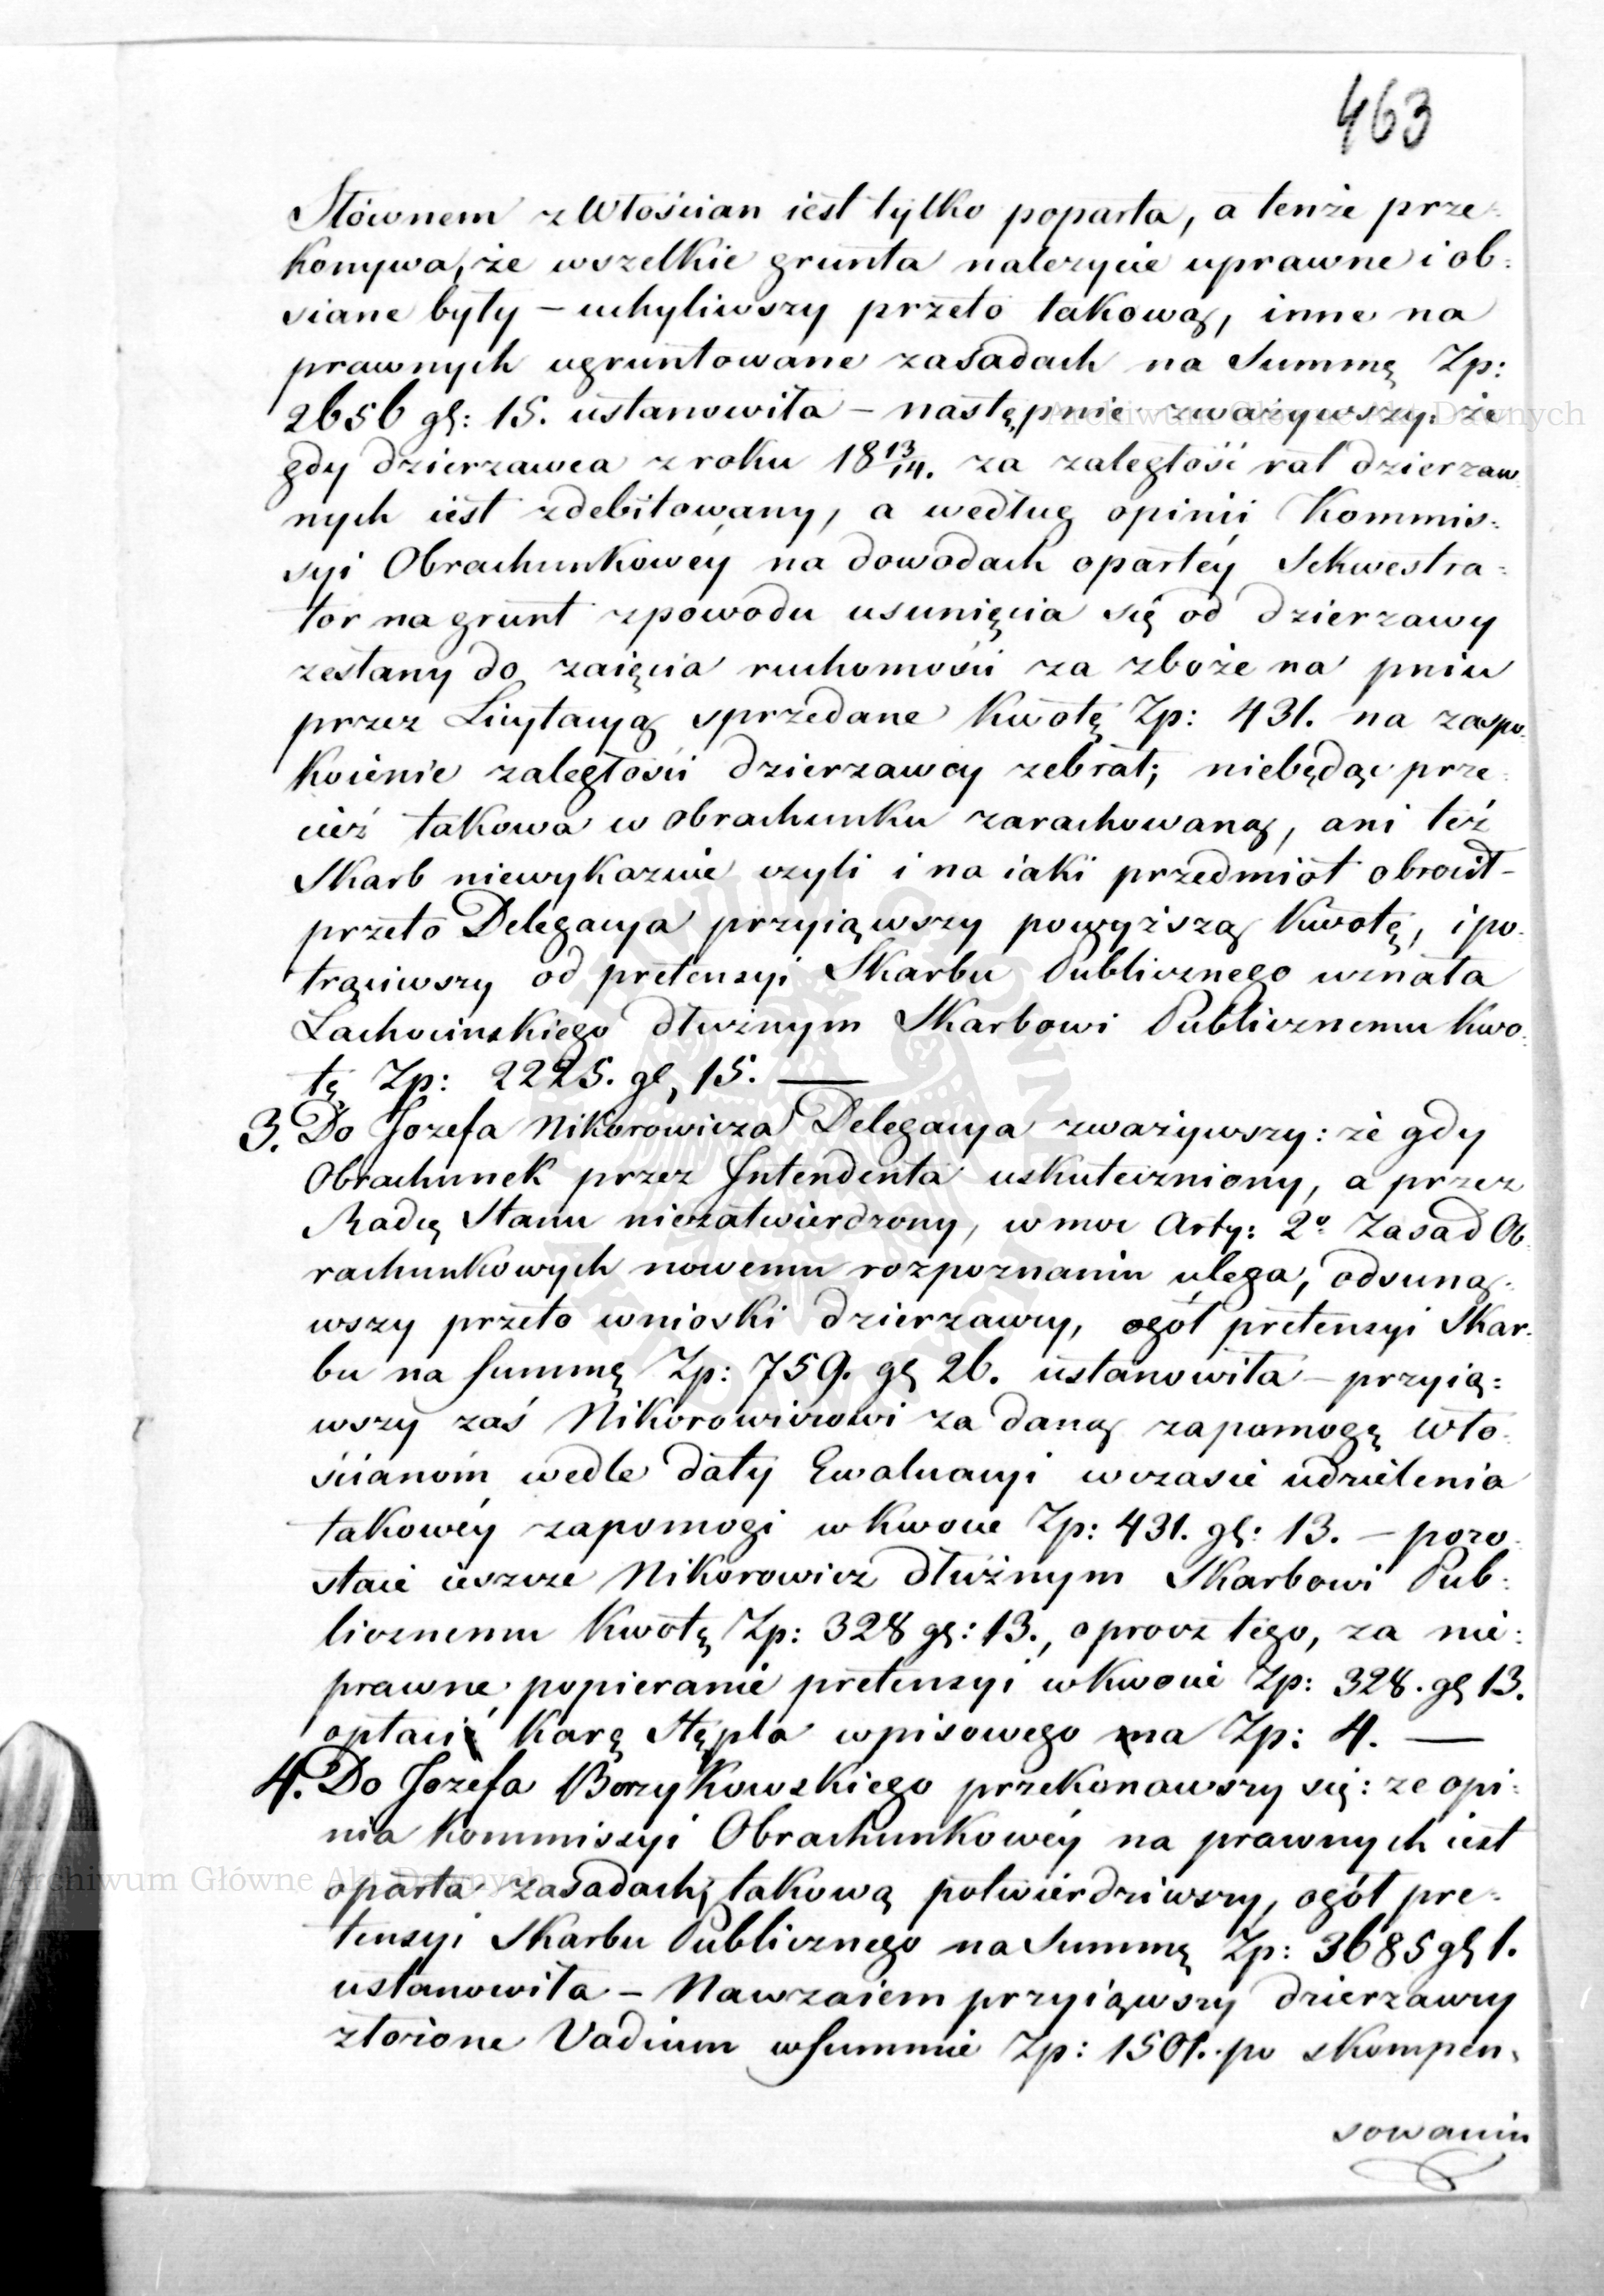 463
Słównem z Włościan iest tylko poparta, a tenże prze-
konywa, że wszelkie grunta należycie uprawne i ob-
siane były – uchyliwszy przeto takową, inne na
prawnych ugruntowane zasadach na Summę Zp:
2656 gl: 15. ustanowiła – następnie zważywszy: że
gdy dzierzawca z roku 18 13/14. za zaległość rat dzierzaw-
nych iest zdebitowany, a według opinii Kommis-
syi Obrachunkowéy na dowodach opartéy Sekwestra-
tor na grunt zpowodu usunięcia się od dzierzawy
zesłany do zaięcia ruchomości za zboże na pniu
przez Licytacyą sprzedane Kwotę Zp: 431. na zaspo-
koienie zaległości dzierzawcy zebrał; niebędąc prze-
cież takowa w obrachunku zarachowaną, ani też
Skarb niewykazuie czyli i na iaki przedmiot obrócił –
przeto Delegacya przyiąwszy powyższą Kwotę, i po-
trąciwszy od pretensyi Skarbu Publicznego uznała
Lachocinskiego dłużnym Skarbowi Publicznemu Kwo-
tę Zp: 2225. gl, 15. —
3. Do Jozefa Nikorowicza Delegacya zważywszy: że gdy
Obrachunek przez Intendenta uskuteczniony, a przez
Radę Stanu niezatwierdzony, w moc Arty: 2º Zasad Ob-
rachunkowych nowemu rozpoznaniu ulega, odsuną-
wszy przeto wnioski dzierzawcy, ogół pretensyi Skar-
bu na Summę Zp: 759. gl 26. ustanowiła – przyią-
wszy zaś Nikorowiczowi za daną zapomogę Wło-
ścianom wedle daty Ewaluacyi wczasie udzielenia
takowéy zapomogi w kwocie Zp: 431. gl: 13. – pozo-
staie ieszcze Nikorowicz dłużnym Skarbowi Pub-
licznemu Kwotę Zp: 328 gl: 13., oprocz tego, za nie-
prawne popieranie pretensyi wkwocie Zp: 328. gl 13.
opłaci Karę Stępla wpisowego na Zp: 4. —
4. Do Jozefa Borzykowskiego przekonawszy się: ze opi-
nia Kommissyi Obrachunkowéy na prawnych iest
oparta zasadach; takową potwierdziwszy, ogół pre-
tensyi Skarbu Publicznego na Summę Zp: 3685 gl 1.
ustanowiła – Nawzaiem przyiąwszy dzierzawcy
złożone Vadium w Summie Zp: 1501. po skompen-
sowaniu
Archiwum Główne Akt Dawnych
Archiwum Główne Akt Dawnych